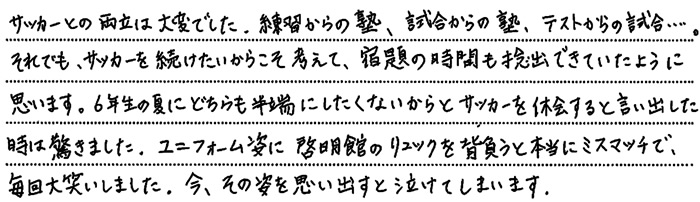 サッカーとの両立は大変でした。練習からの塾、試合からの塾、テストからの試合…。
それでも、サッカーを続けたいからこそ考えて、宿題の時間も捻出できていたように
思います。6年生の夏にどちらも半端にしたくないからとサッカーを休会すると言い出した
時は驚きました。ユニフォーム姿に啓明館のリュックを背負うと本当にミスマッチで、
毎回大笑いしました。今、その姿を思い出すと泣けてしまいます。